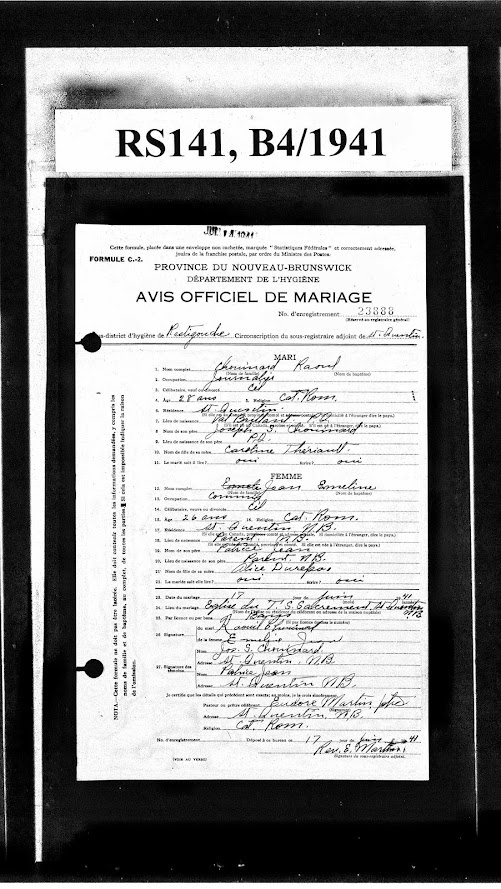 RS141, B4/1941
JUN 14 1941
Cette formule, placée dans une enveloppe non cachetée, marquée "Statistiques Fédérales" et correctement adressée,
jouira de la franchise postale, par ordre du Ministre des Postes.
FORMULE C.-2.
PROVINCE DU NOUVEAU-BRUNSWICK
DÉPARTEMENT DE L'HYGIÈNE
AVIS OFFICIEL DE MARIAGE
No. d'enregistrement 23888
(Réservé au registraire général)
s-district d'hygiène de Restigouche Circonscription du sous-registraire adjoint de St. Quentin
MARI
1. Nom complet Chouinard Raoul
(Nom de famille) (Nom de baptême)
2. Occupation Journalier
3. Célibataire, veuf ou divorcé Cel
4. Age 28 ans 5. Religion Cat. Rom.
6. Résidence St. Quentin
7. Lieu de naissance P.Q.
8. Nom de son père Joseph S. Chouinard
9. Lieu de naissance de son père P.Q.
10. Nom de fille de sa mère Caroline Thériault
11. Le marié sait-il lire? oui écrire? oui
FEMME
12. Nom complet Jean Emeline
(Nom de famille) (Nom de baptême)
13. Occupation
14. Célibataire, veuve ou divorcée Cel
15. Age 26 ans 16. Religion Cat. Rom.
17. Résidence St. Quentin N.B.
18. Lieu de naissance Parent N.B.
19. Nom de son père Patrice Jean
20. Lieu de naissance de son père Parent N.B.
21. Nom de fille de sa mère Alice Durepos
22. La mariée sait-elle lire? oui écrire? oui
23. Date du mariage 17 juin 41
24. Lieu du mariage Eglise du T. S. Sacrement St. Quentin N.B.
25. Par licence ou par bans? Bans
26. Signature du mari Raoul Chouinard
de la femme Emeline Jean
27. Signature des témoins Jos. S. Chouinard
Adresse St. Quentin N.B.
Patrice Jean
Adresse St. Quentin N.B.
Je certifie que les détails qui précèdent sont exacts; en foi de quoi, je le crois sincèrement.
Pasteur ou prêtre célébrant Eudore Martin ptre
(Signature)
Adresse St. Quentin N.B.
Religion Cat. Rom.
No. d'enregistrement Déposé à ce bureau ce 17 jour de juin 1941
Rev. E. Martin
Signature du sous-registraire adjoint.
(VOIR AU VERSO)
NOTA—Cette formule ne doit pas être lacérée. Elle doit contenir toutes les informations demandées, y compris les
noms de famille et de baptême, au complet, de toutes les parties. Si cela est impossible indiquer la raison
de l'omission.